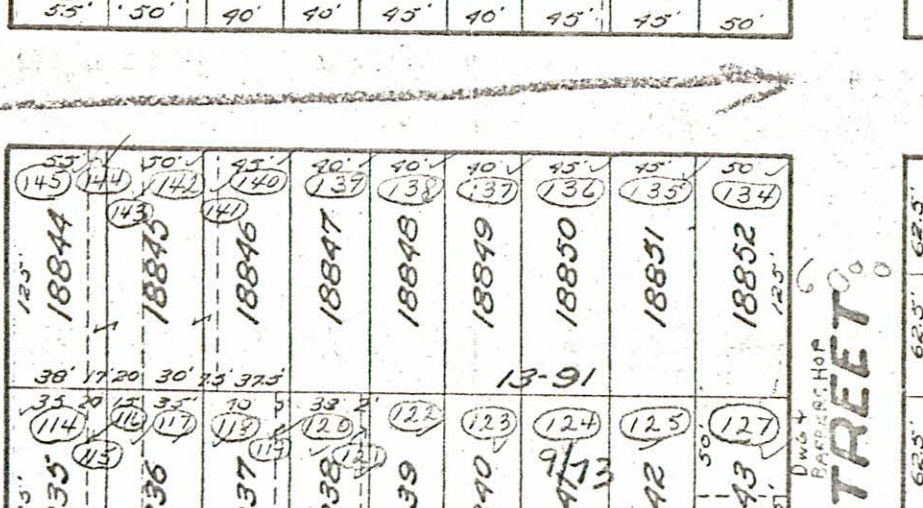 55' 50' 40' 40' 45' 40' 45' 45' 50'
55' 50' 45' 40' 40' 40' 45' 45' 50'
145 144 142 140 139 138 137 136 135 134
143 141
125' 18844 18845 18846 18847 18848 18849 18850 18851 18852 125'
38' 17' 20 30' 7.5' 37.5'
13-91
35 20 15' 35' 5 38 2'
114 116 117 118 120 122 123 124 125 127
115 119 121
9/73
50'
35 36 37 38 39 40 42 43
TREET
62.5'
62.5'
62.5'